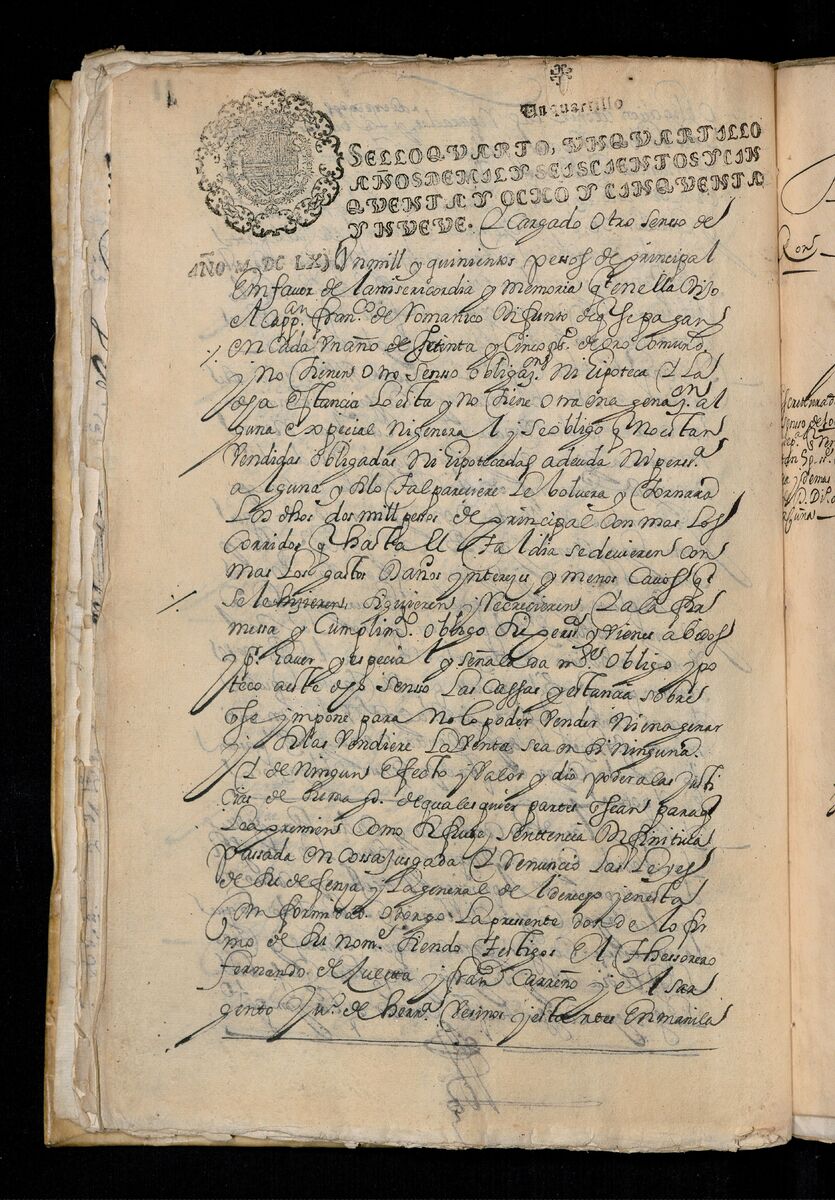 Un quartillo
SELLO QVARTO, VN QVARTILLO
AÑOS DE MIL Y SEISCIENTOS Y CIN
QVENTA Y OCHO Y CINQVENTA
Y NVEVE. Cargado Otro Senso de
AÑO M. DC LX) Un mill y quinientos pessos de principal
En fauor de la misericordia y memoria q̃ en ella Dijo
el Capp.an Fran.co de Difunto de q̃ Se pagan
en cada Vn año de Setenta y Cinco p.s de Oro Comun
y No tienen Otro Senso Obligaz.on Ni Ypoteca La
dha Estancia y No tiene Otra Enagenaz.on al
guna Expecial Ni general y se obligo q̃ No estan
Vendidas Obligadas Ni Ypotecadas a deuda Ni perss.a
alguna y Silo tal pareciere Le boluera y tornara
Los dhos dos mill pessos de principal Con mas Los
Corridos q̃ hasta el tal dia se deuieren con
mas Los gastos Daños yntereses y menos Cauos q̃
Se le siguieren y Recrecieren a la fir
messa y Cumplim.to Obligo Su perss.a y Vienes abidos
y p.r hauer y especial y señalada m.te Obligo ypo
teco a este dho Senso Las Cassas y estancia sobre
q̃ Se ympone para No lo poder Vender Ni enagenar
y Si las Vendiere La Venta sea en Si Ninguna
de Ningun Efecto y Valor y dio poder a las Justi
cias de Su mag.d de quales quier partes q̃ Sean para q̃
Le apremien Como Si fuese Senttencia Difinitiua
Passada en Cossa Jusgada Renuncio Las Leyes
de Su defensa y La general del derecho y en esta
Conformidad Otorgo La pressente donde lo fir
mo de Su nom.e Siendo Testigos El Thessorero
Fernando de y Fran.co Carreño y el sar
gento Ju.o de Herr.a Vesinos y estantes En manila